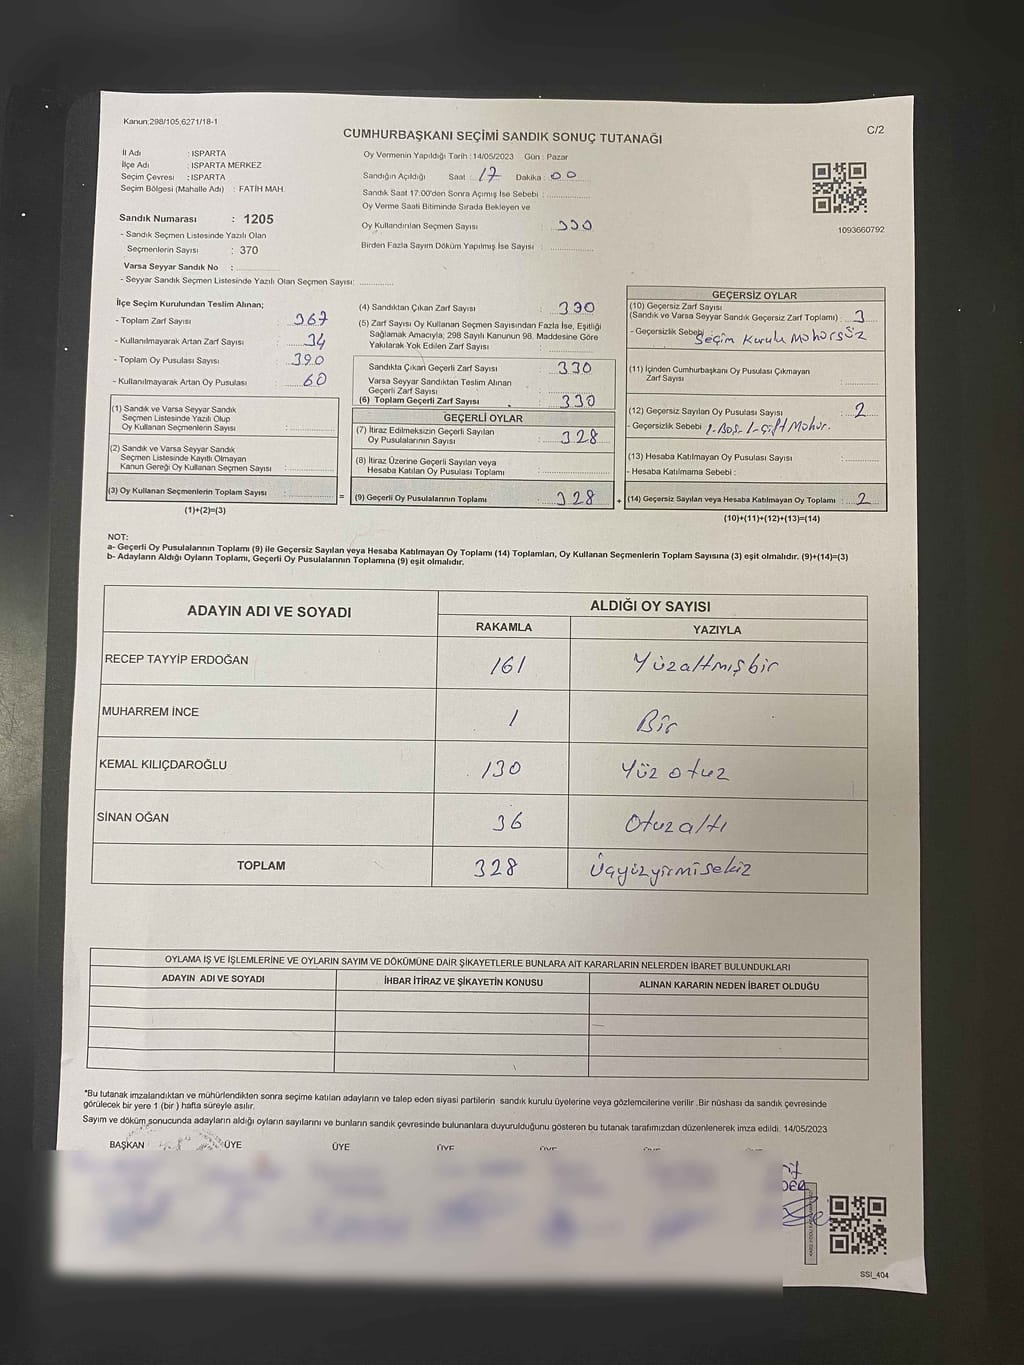 Kanun;298/105,6271/18-1
CUMHURBAŞKANI SEÇİMİ SANDIK SONUÇ TUTANAĞI
C/2
İl Adı : ISPARTA
İlçe Adı : ISPARTA MERKEZ
Seçim Çevresi : ISPARTA
Seçim Bölgesi (Mahalle Adı) : FATİH MAH.
Sandık Numarası : 1205
- Sandık Seçmen Listesinde Yazılı Olan
Seçmenlerin Sayısı : 370
Varsa Seyyar Sandık No :
- Seyyar Sandık Seçmen Listesinde Yazılı Olan Seçmen Sayısı:
Oy Vermenin Yapıldığı Tarih : 14/05/2023 Gün : Pazar
Sandığın Açıldığı Saat : 17 Dakika : 00
Sandık Saat 17:00'den Sonra Açımış İse Sebebi :
Oy Verme Saati Bitiminde Sırada Bekleyen ve
Oy Kullandırılan Seçmen Sayısı : 330
Birden Fazla Sayım Döküm Yapılmış İse Sayısı :
1093660792
İlçe Seçim Kurulundan Teslim Alınan;
- Toplam Zarf Sayısı : 367
- Kullanılmayarak Artan Zarf Sayısı : 34
- Toplam Oy Pusulası Sayısı : 390
- Kullanılmayarak Artan Oy Pusulası : 60
(1) Sandık ve Varsa Seyyar Sandık
Seçmen Listesinde Yazılı Olup
Oy Kullanan Seçmenlerin Sayısı :
(2) Sandık ve Varsa Seyyar Sandık
Seçmen Listesinde Kayıtlı Olmayan
Kanun Gereği Oy Kullanan Seçmen Sayısı :
(3) Oy Kullanan Seçmenlerin Toplam Sayısı :
(1)+(2)=(3)
=
(4) Sandıktan Çıkan Zarf Sayısı : 330
(5) Zarf Sayısı Oy Kullanan Seçmen Sayısından Fazla İse, Eşitliği
Sağlamak Amacıyla; 298 Sayılı Kanunun 98. Maddesine Göre
Yakılarak Yok Edilen Zarf Sayısı :
Sandıkta Çıkan Geçerli Zarf Sayısı : 330
Varsa Seyyar Sandıktan Teslim Alınan
Geçerli Zarf Sayısı :
(6) Toplam Geçerli Zarf Sayısı : 330
GEÇERLİ OYLAR
(7) İtiraz Edilmeksizin Geçerli Sayılan
Oy Pusulalarının Sayısı : 328
(8) İtiraz Üzerine Geçerli Sayılan veya
Hesaba Katılan Oy Pusulası Toplamı :
(9) Geçerli Oy Pusulalarının Toplamı : 328
+
GEÇERSİZ OYLAR
(10) Geçersiz Zarf Sayısı
(Sandık ve Varsa Seyyar Sandık Geçersiz Zarf Toplamı) : 3
- Geçersizlik Sebebi Seçim Kurulu Mühürsüz
(11) İçinden Cumhurbaşkanı Oy Pusulası Çıkmayan
Zarf Sayısı :
(12) Geçersiz Sayılan Oy Pusulası Sayısı : 2
- Geçersizlik Sebebi 1-Boş-1-Çift Mühür.
(13) Hesaba Katılmayan Oy Pusulası Sayısı :
- Hesaba Katılmama Sebebi :
(14) Geçersiz Sayılan veya Hesaba Katılmayan Oy Toplamı : 2
(10)+(11)+(12)+(13)=(14)
NOT:
a- Geçerli Oy Pusulalarının Toplamı (9) ile Geçersiz Sayılan veya Hesaba Katılmayan Oy Toplamı (14) Toplamları, Oy Kullanan Seçmenlerin Toplam Sayısına (3) eşit olmalıdır. (9)+(14)=(3)
b- Adayların Aldığı Oyların Toplamı, Geçerli Oy Pusulalarının Toplamına (9) eşit olmalıdır.
ADAYIN ADI VE SOYADI
ALDIĞI OY SAYISI
RAKAMLA YAZIYLA
RECEP TAYYİP ERDOĞAN 161 Yüzaltmışbir
MUHARREM İNCE 1 Bir
KEMAL KILIÇDAROĞLU 130 Yüz otuz
SİNAN OĞAN 36 Otuzaltı
TOPLAM 328 Üçyüzyirmisekiz
OYLAMA İŞ VE İŞLEMLERİNE VE OYLARIN SAYIM VE DÖKÜMÜNE DAİR ŞİKAYETLERLE BUNLARA AİT KARARLARIN NELERDEN İBARET BULUNDUKLARI
ADAYIN ADI VE SOYADI İHBAR İTİRAZ VE ŞİKAYETİN KONUSU ALINAN KARARIN NEDEN İBARET OLDUĞU
*Bu tutanak imzalandıktan ve mühürlendikten sonra seçime katılan adayların ve talep eden siyasi partilerin sandık kurulu üyelerine veya gözlemcilerine verilir .Bir nüshası da sandık çevresinde
görülecek bir yere 1 (bir ) hafta süreyle asılır.
Sayım ve döküm sonucunda adayların aldığı oyların sayılarını ve bunların sandık çevresinde bulunanlara duyurulduğunu gösteren bu tutanak tarafımızdan düzenlenerek imza edildi. 14/05/2023
BAŞKAN ÜYE ÜYE ÜYE
SSI_404